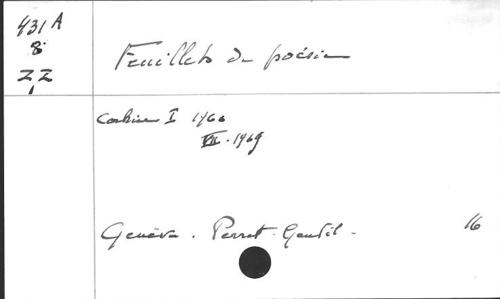 431 A
8
ZZ
1
Feuillets de poésie
Cahier I 1966
VII. 1969
Genève. Perret-Gentil.
16